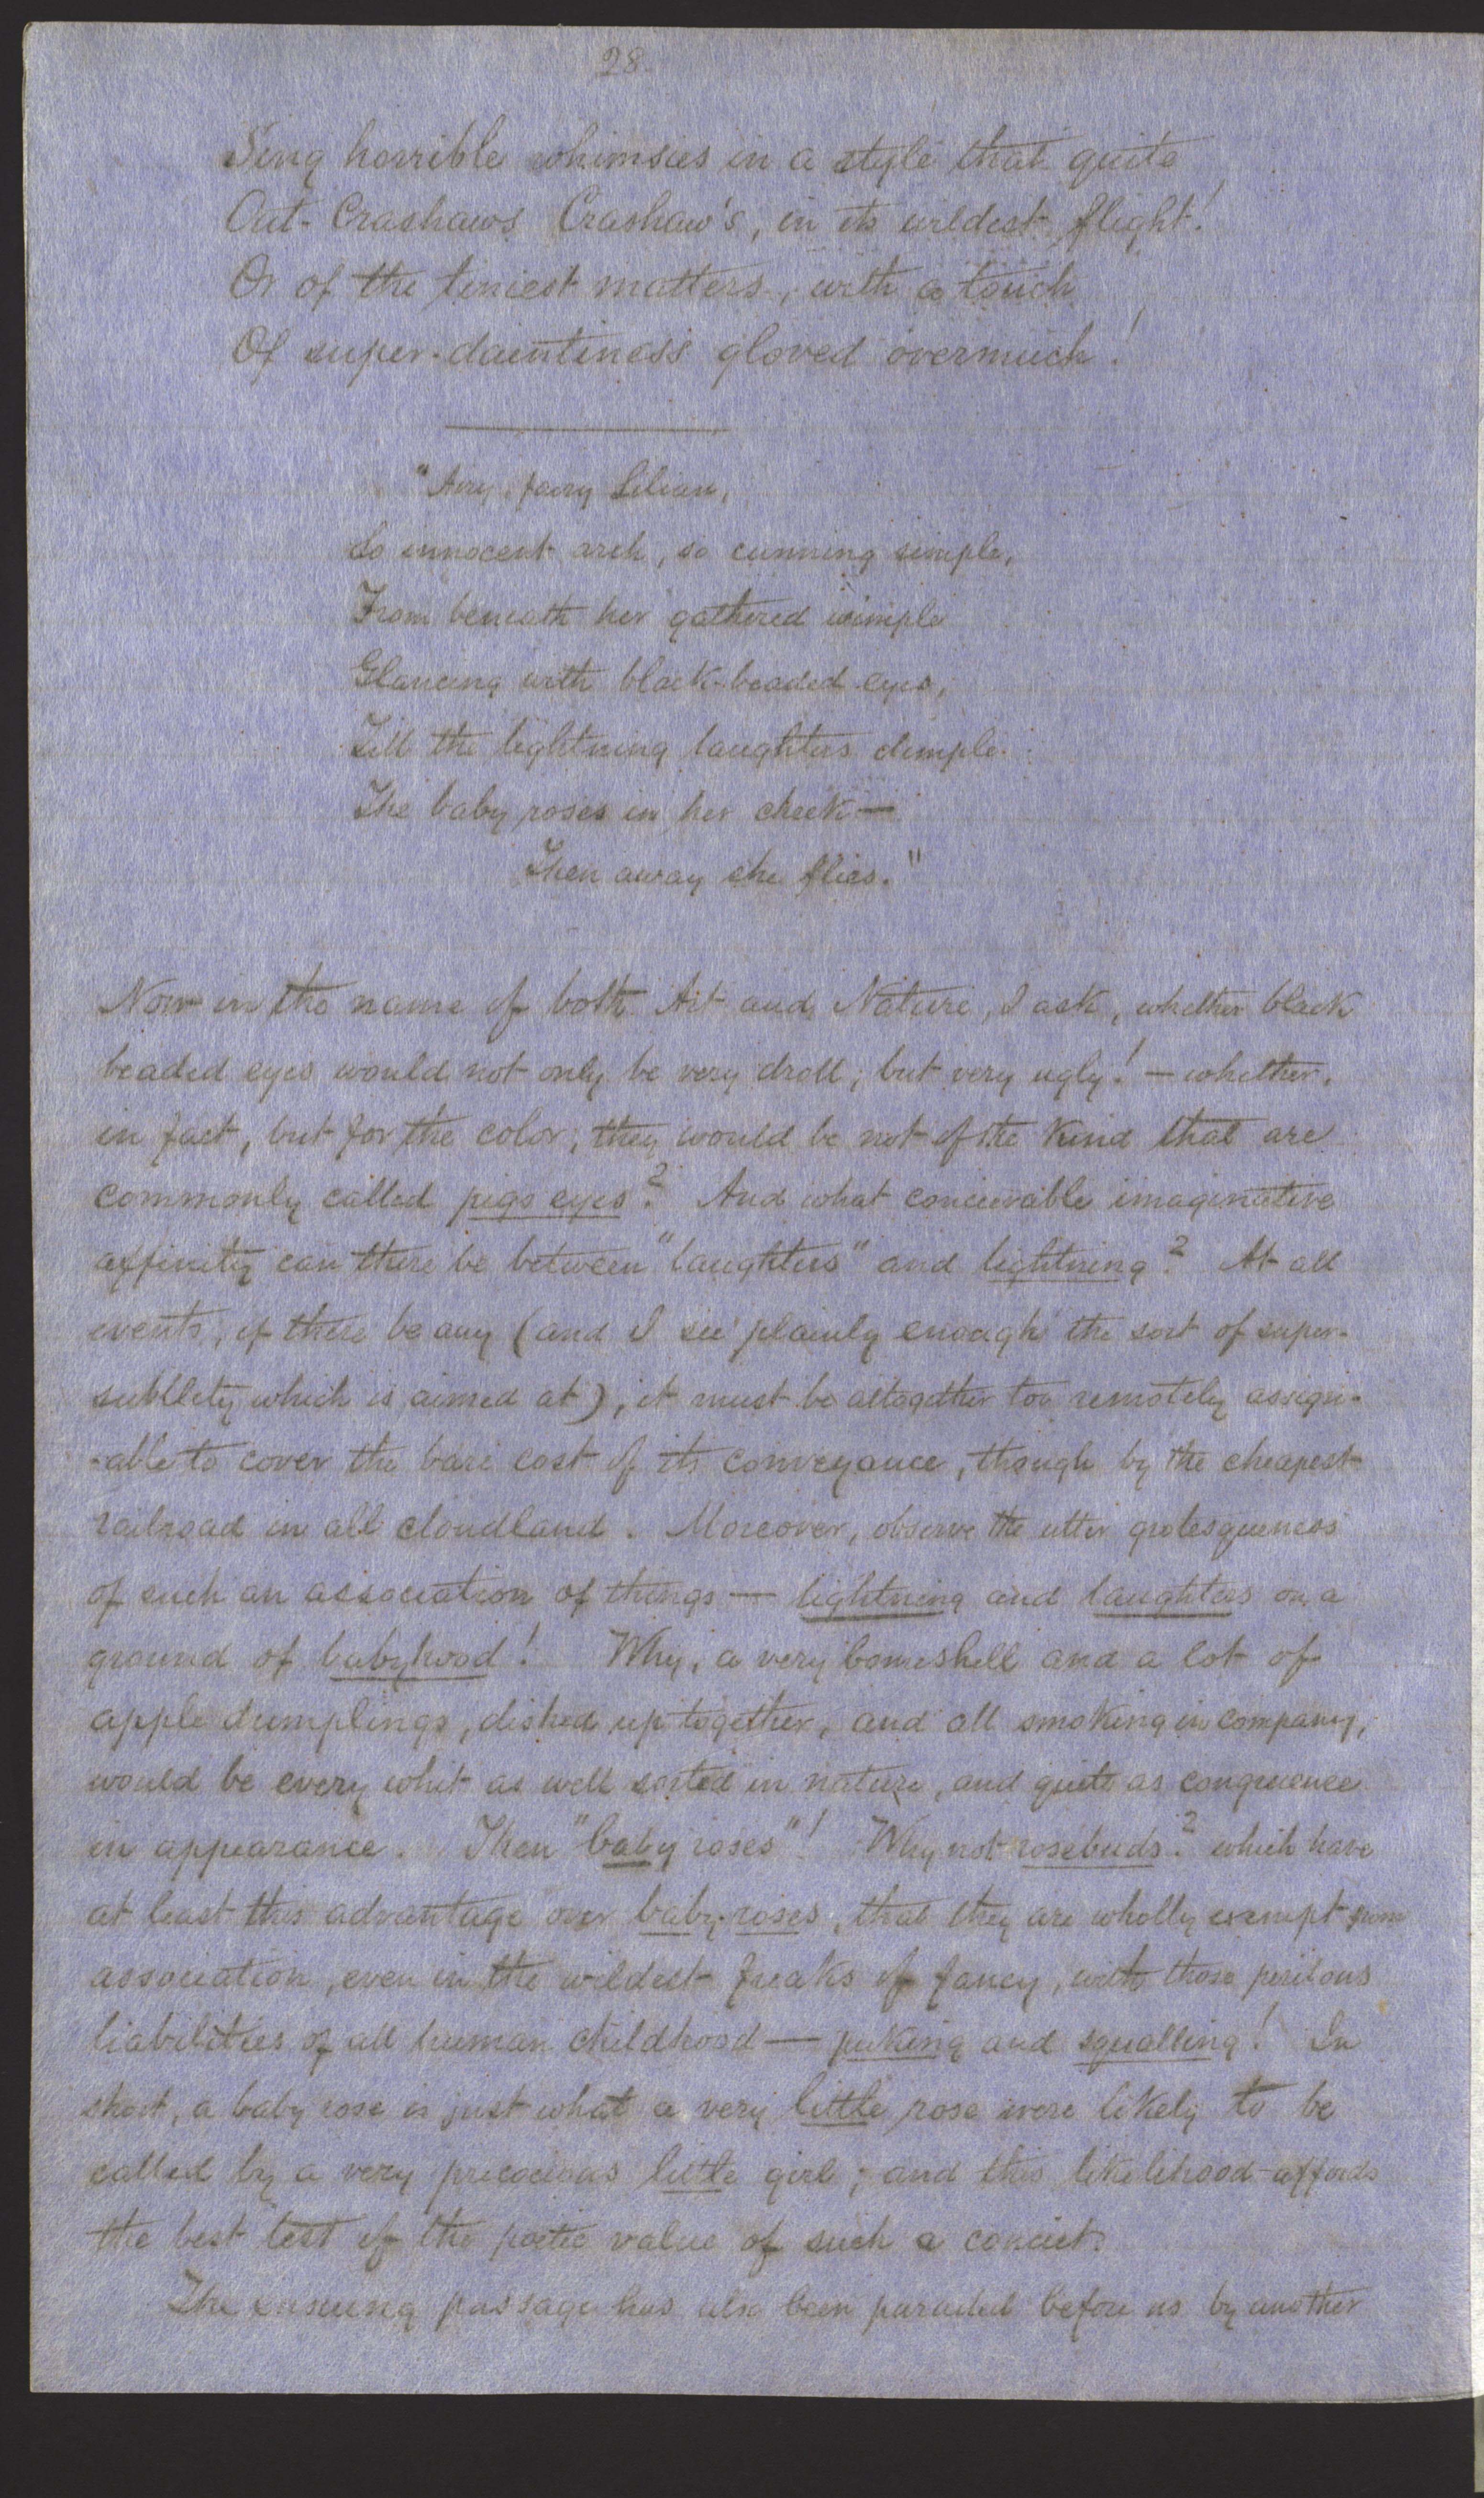 28.
Sing horrible whimsies in a style that quite
Out-Crashaws Crashaw's, in its wildest flight!
Or of the tiniest matters, with a touch
Of super-daintiness gloved overmuch!
"Airy, fairy Lilian,
So innocent arch, so cunning simple,
From beneath her gathered wimple
Glancing with black-beaded eyes,
Till the lightning laughters dimple
The baby roses in her cheek —
Then away she flies."
Now in the name of both Art and Nature, I ask, whether black
beaded eyes would not only be very droll, but very ugly! — whether,
in fact, but for the color, they would be not of the kind that are
commonly called pigs eyes? And what conceivable imaginative
affinity can there be between "laughters" and lightning? At all
events, if there be any (and I see plainly enough the sort of super-
subtlety which is aimed at), it must be altogether too remotely assign-
-able to cover the bare cost of its conveyance, though by the cheapest
railroad in all cloudland. Moreover, observe the utter grotesqueness
of such an association of things — lightning and laughters on a
ground of babyhood! Why, a very bomeshell and a lot of
apple dumplings, dished up together, and all smoking in company,
would be every whit as well sorted in nature, and quite as congruence
in appearance. Then "baby roses"! Why not rosebuds? which have
at least this advantage over baby-roses, that they are wholly exempt from
association, even in the wildest freaks of fancy, with those perilous
liabilities of all human childhood — puking and squalling! In
short, a baby rose is just what a very little rose were likely to be
called by a very precocious little girl; and this likelihood affords
the best test of the poetic value of such a conciet.
The ensueing passage has also been paraded before us by another